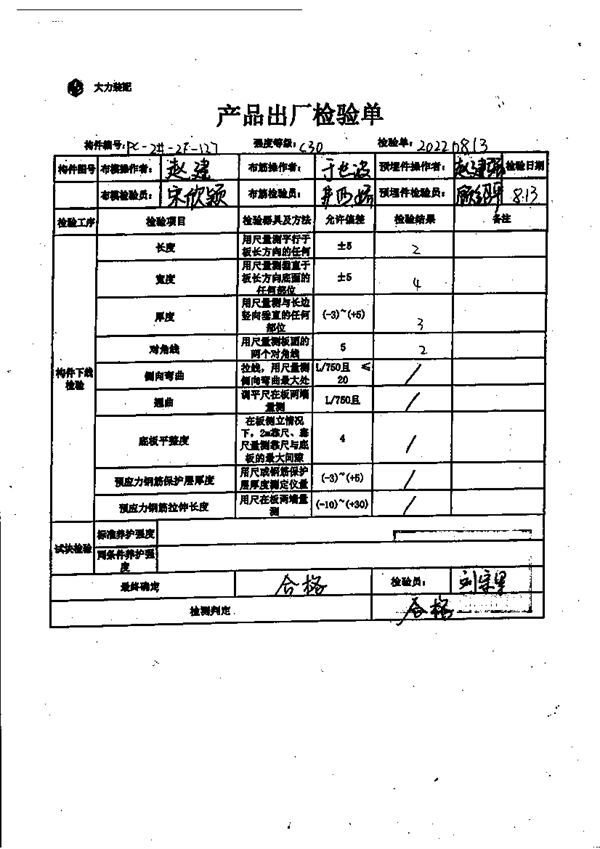 大力装配
产品出厂检验单
构件编号: PC-2#-2F-127 强度等级: C30 检验单: 20220813
构件图号 布模操作者: 赵建 布筋操作者: 预埋件操作者: 赵建强 检验日期
布模检验员: 宋欣颖 布筋检验员: 预埋件检验员: 8.13
检验工序 检验项目 检验器具及方法 允许偏差 检验结果 备注
构件下线检验
长度 用尺量测平行于板长方向的任何 ±5 2
宽度 用尺量测垂直于板长方向底面的任何部位 ±5 4
厚度 用尺量测与长边竖向垂直的任何部位 (-3)~(+5) 3
对角线 用尺量测板面的两个对角线 5 2
侧向弯曲 拉线,用尺量测侧向弯曲最大处 L/750且 ≤20 /
翘曲 调平尺在板两端量测 L/750且 /
底板平整度 在板侧立情况下,2m靠尺、塞尺量测靠尺与底板的最大间隙 4 /
预应力钢筋保护层厚度 用尺或钢筋保护层厚度测定仪量 (-3)~(+5) /
预应力钢筋拉伸长度 用尺在板两端量测 (-10)~(+30) /
试块检验 标准养护强度
同条件养护强度
最终确定 合格 检验员:
检测判定 合格